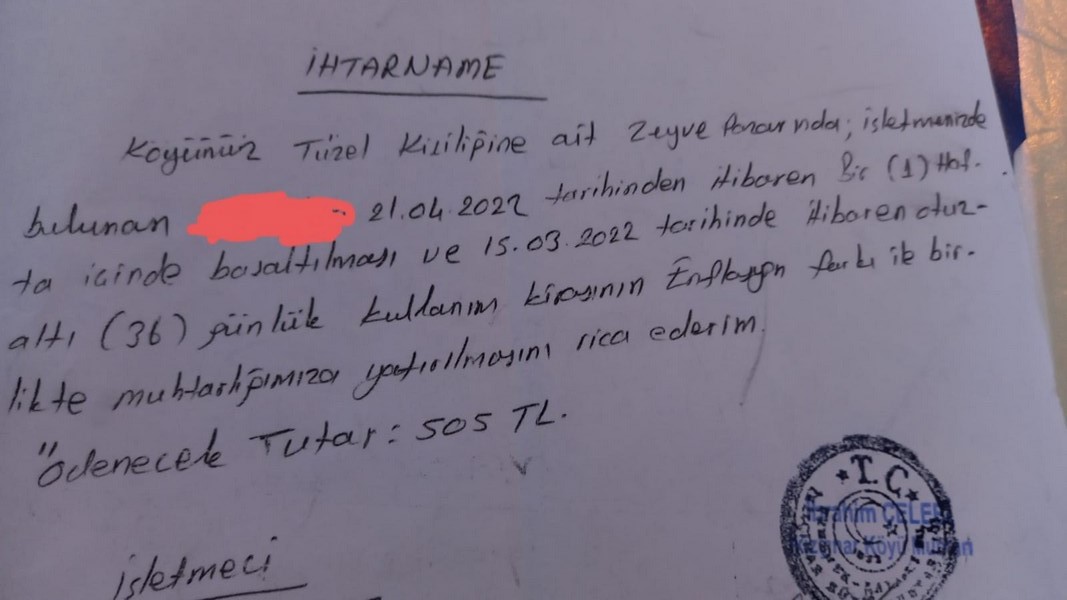 İHTARNAME
Köyünüz Tüzel Kişiliğine ait Zeyve Pazarında; işletmenizde
bulunan 21.04.2022 tarihinden itibaren Bir (1) Haf-
ta içinde boşaltılması ve 15.03.2022 tarihinde itibaren otuz-
altı (36) günlük kullanım kirasının Enflasyon farkı ile bir-
likte muhtarlığımıza yatırılmasını rica ederim.
Ödenecek Tutar: 505 TL.
T.C.
İbrahim ÇELE
Köyü
İşletmeci